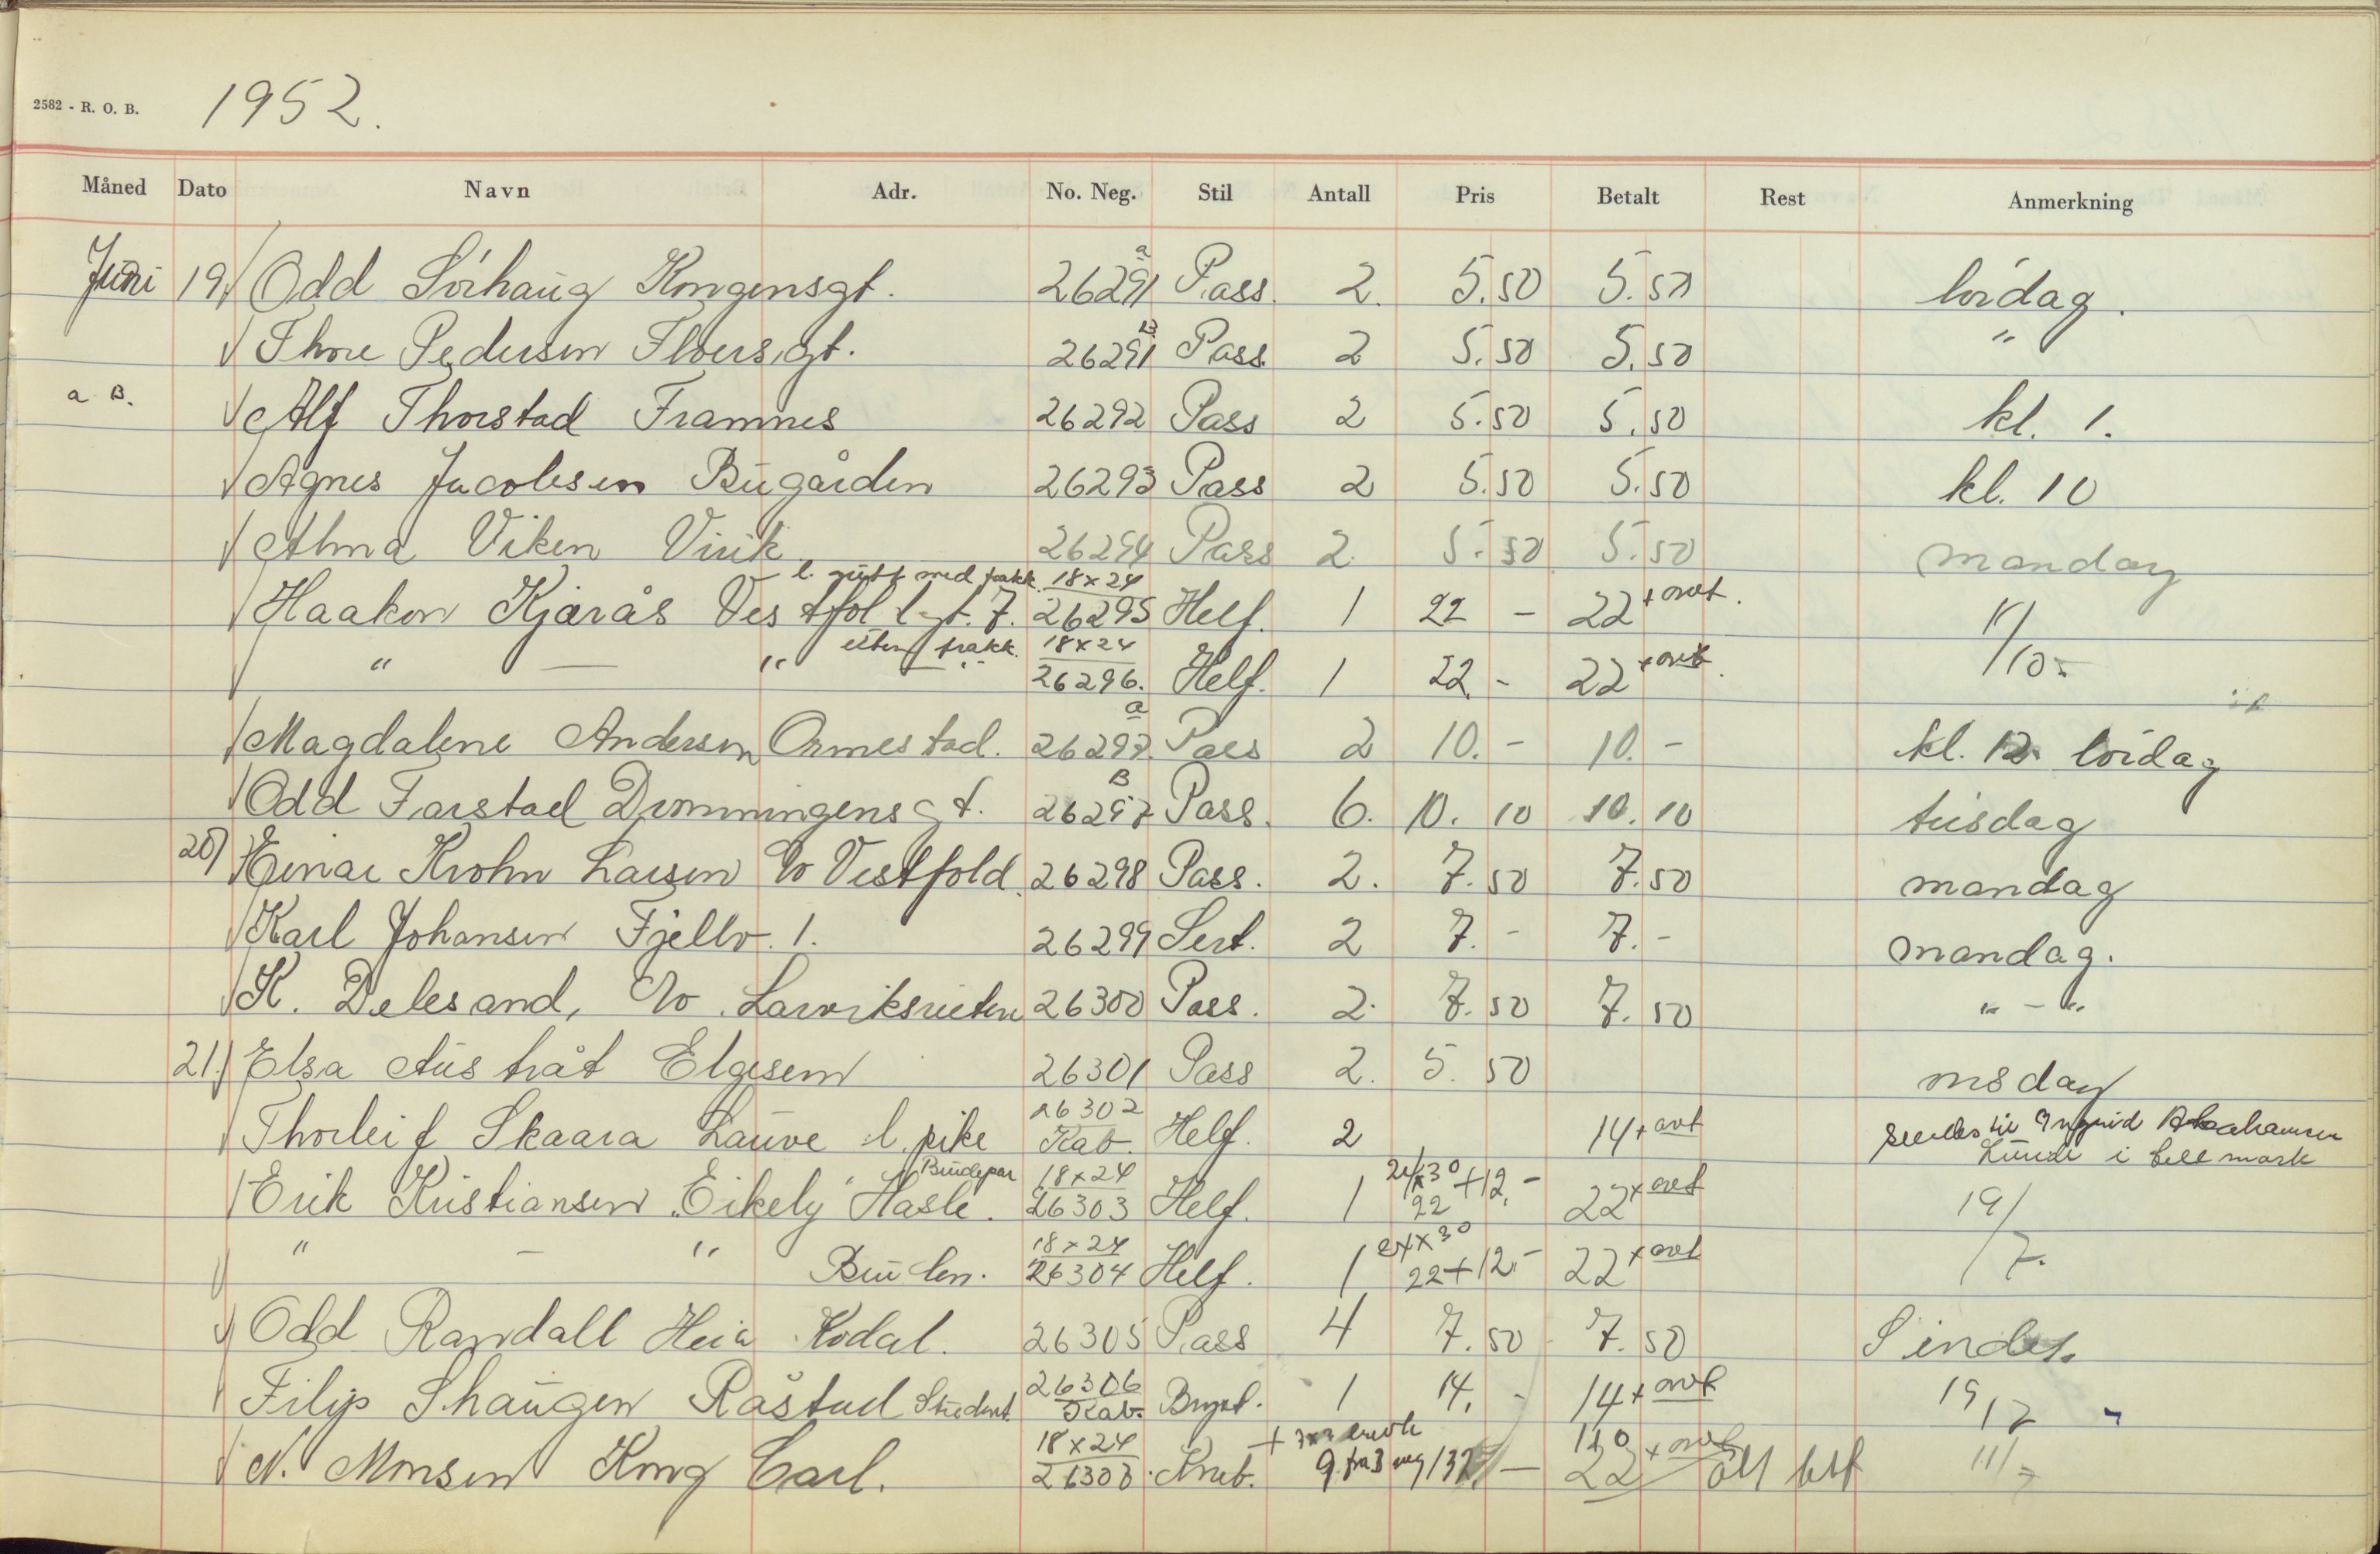 2582 - R. O. B. 1952.
Måned Dato Navn Adr. No. Neg. Stil Antall Pris Betalt Rest Anmerkning
Juni 19. Odd Sörhaug Kongensgt. 26291 a Pass. 2. 5.50 5.50 lördag.
Thore Pedersen Floersgt. 26291 B Pass. 2 5.50 5.50 "
a B. Alf Thorstad Framnes 26292 Pass 2 5.50 5.50 kl. 1.
Agnes Jacobsen Bugården 26293 Pass 2 5.50 5.50 kl. 10
Alma Viken Virik 26294 Pass 2. 5.50 5.50 mandag
l. gutt med frakk. 18x24
Haakon Kjærås Vestfoldgt. 7. 26295 Helf. 1 22 - 22 + avt. 1/10.
" — " uten frakk. 18x24
26296. Helf. 1 22. - 22 + avt.
Magdalene Andersen Ormestad. 26297. a Pass 2 10. - 10. - kl. 12. lördag
Odd Farstad Dronningensgt. 26297 B Pass. 6. 10. 10 10. 10 tirsdag
20) Einar Krohn Larsen %o Vestfold. 26298 Pass. 2. 7.50 7.50 mandag
Karl Johansen Fjellv. 1. 26299 Sert. 2 7. - 7. - mandag.
K. Delesand, %o. Larviksruten 26300 Pass. 2. 7.50 7.50 " - "
21.) Elsa Austråt Elgesem 26301 Pass 2. 5. 50 onsdag
Thorleif Skaara Lauve l. pike 26302 Kab. Helf. 2 14 + avt sendes til Ingrid Abrahamsen
Lunde i Telemark
Brudepar 18x24 24x30
Erik Kristiansen "Eikely" Hasle. 26303 Helf. 1 22 + 12.- 22 + avt 19/7.
" — " Bruden. 18x24 26304 Helf. 1 24x30 22+12.- 22 + avt
Odd Randall Heia Kodal. 26305 Pass 4 7.50 7.50 Sendes.
Filip Shaugen Råstad Student 26306 Kab. Bryst. 1 14. - 14 + avt 19/7
N. Monsen Kong Carl. 18x24 Kneb. 9 fra 3 neg 137 — 22 + avt 110 alt bet 11/7